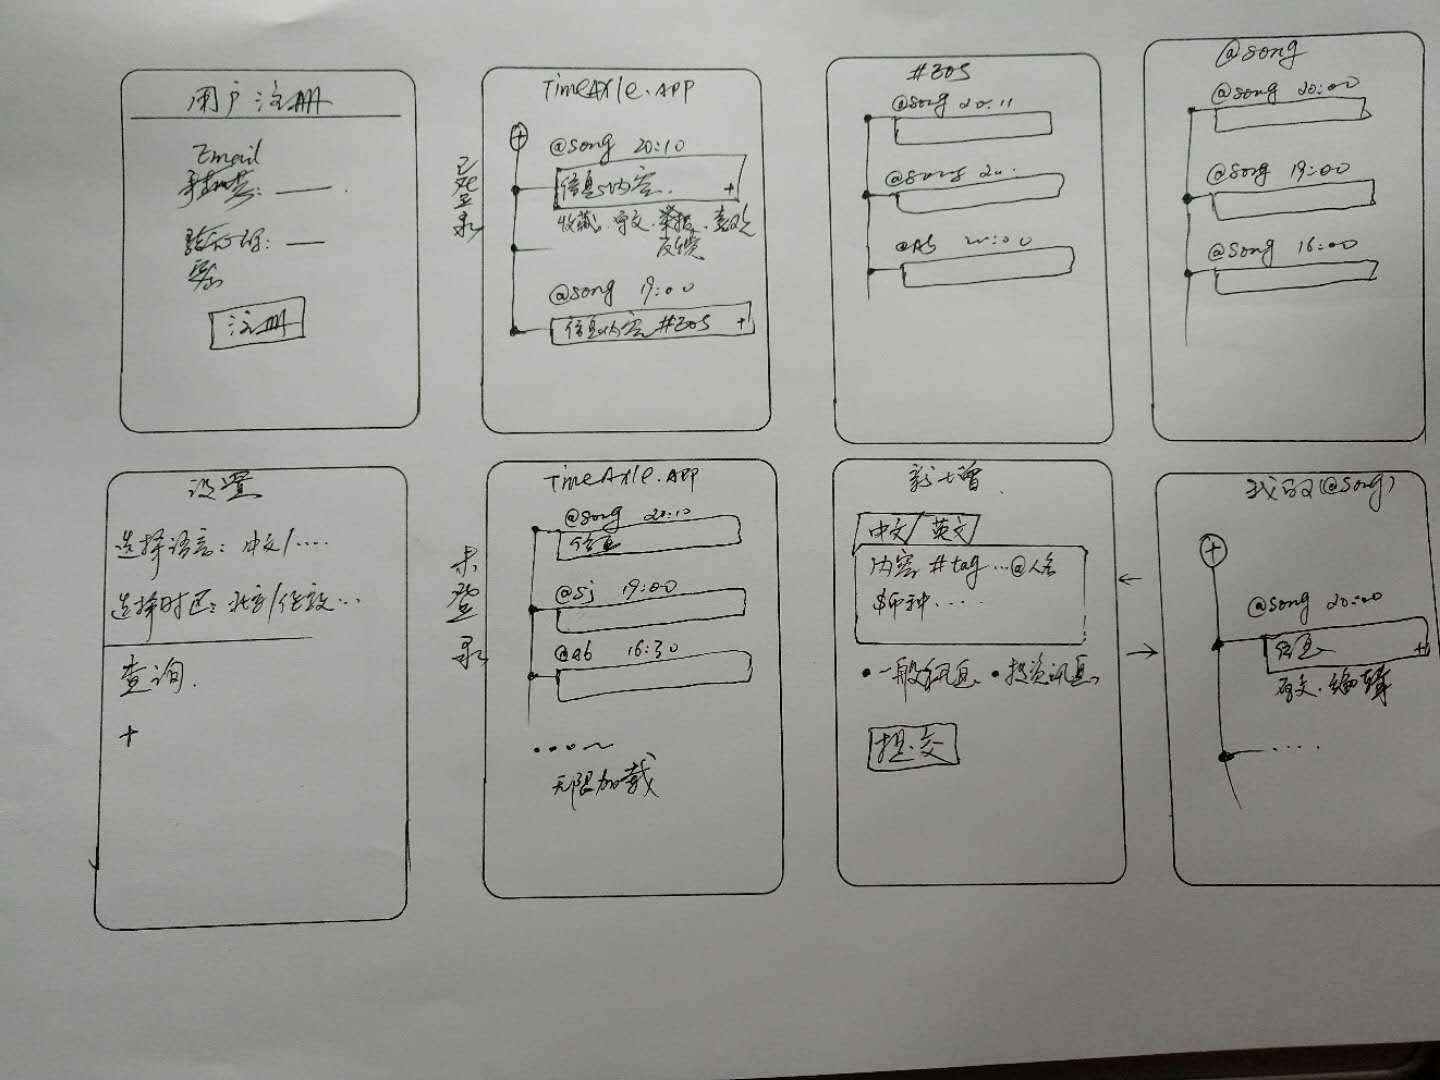 用户注册
Email
验证码:
注册
已登录
TimeAxle.APP
@song 20:10
信息内容. +
收藏. 守文. 喜欢
反馈
@song 19:00
信息内容 #EOS +
#EOS
@song 20:11
@song 20:
@AB 20:00
@song
@song 20:00
@song 19:00
@song 16:00
设置
选择语言: 中文/....
选择时区: 北京/伦敦...
查询.
+
未登录
TimeAxle.APP
@song 20:10
信息
@sj 19:00
@ab 16:30
无限加载
新增
中文/英文
内容 #tag ...@人名
$币种......
•一般讯息 •投资讯息
提交
我的(@song)
@song 20:00
信息 +
编辑